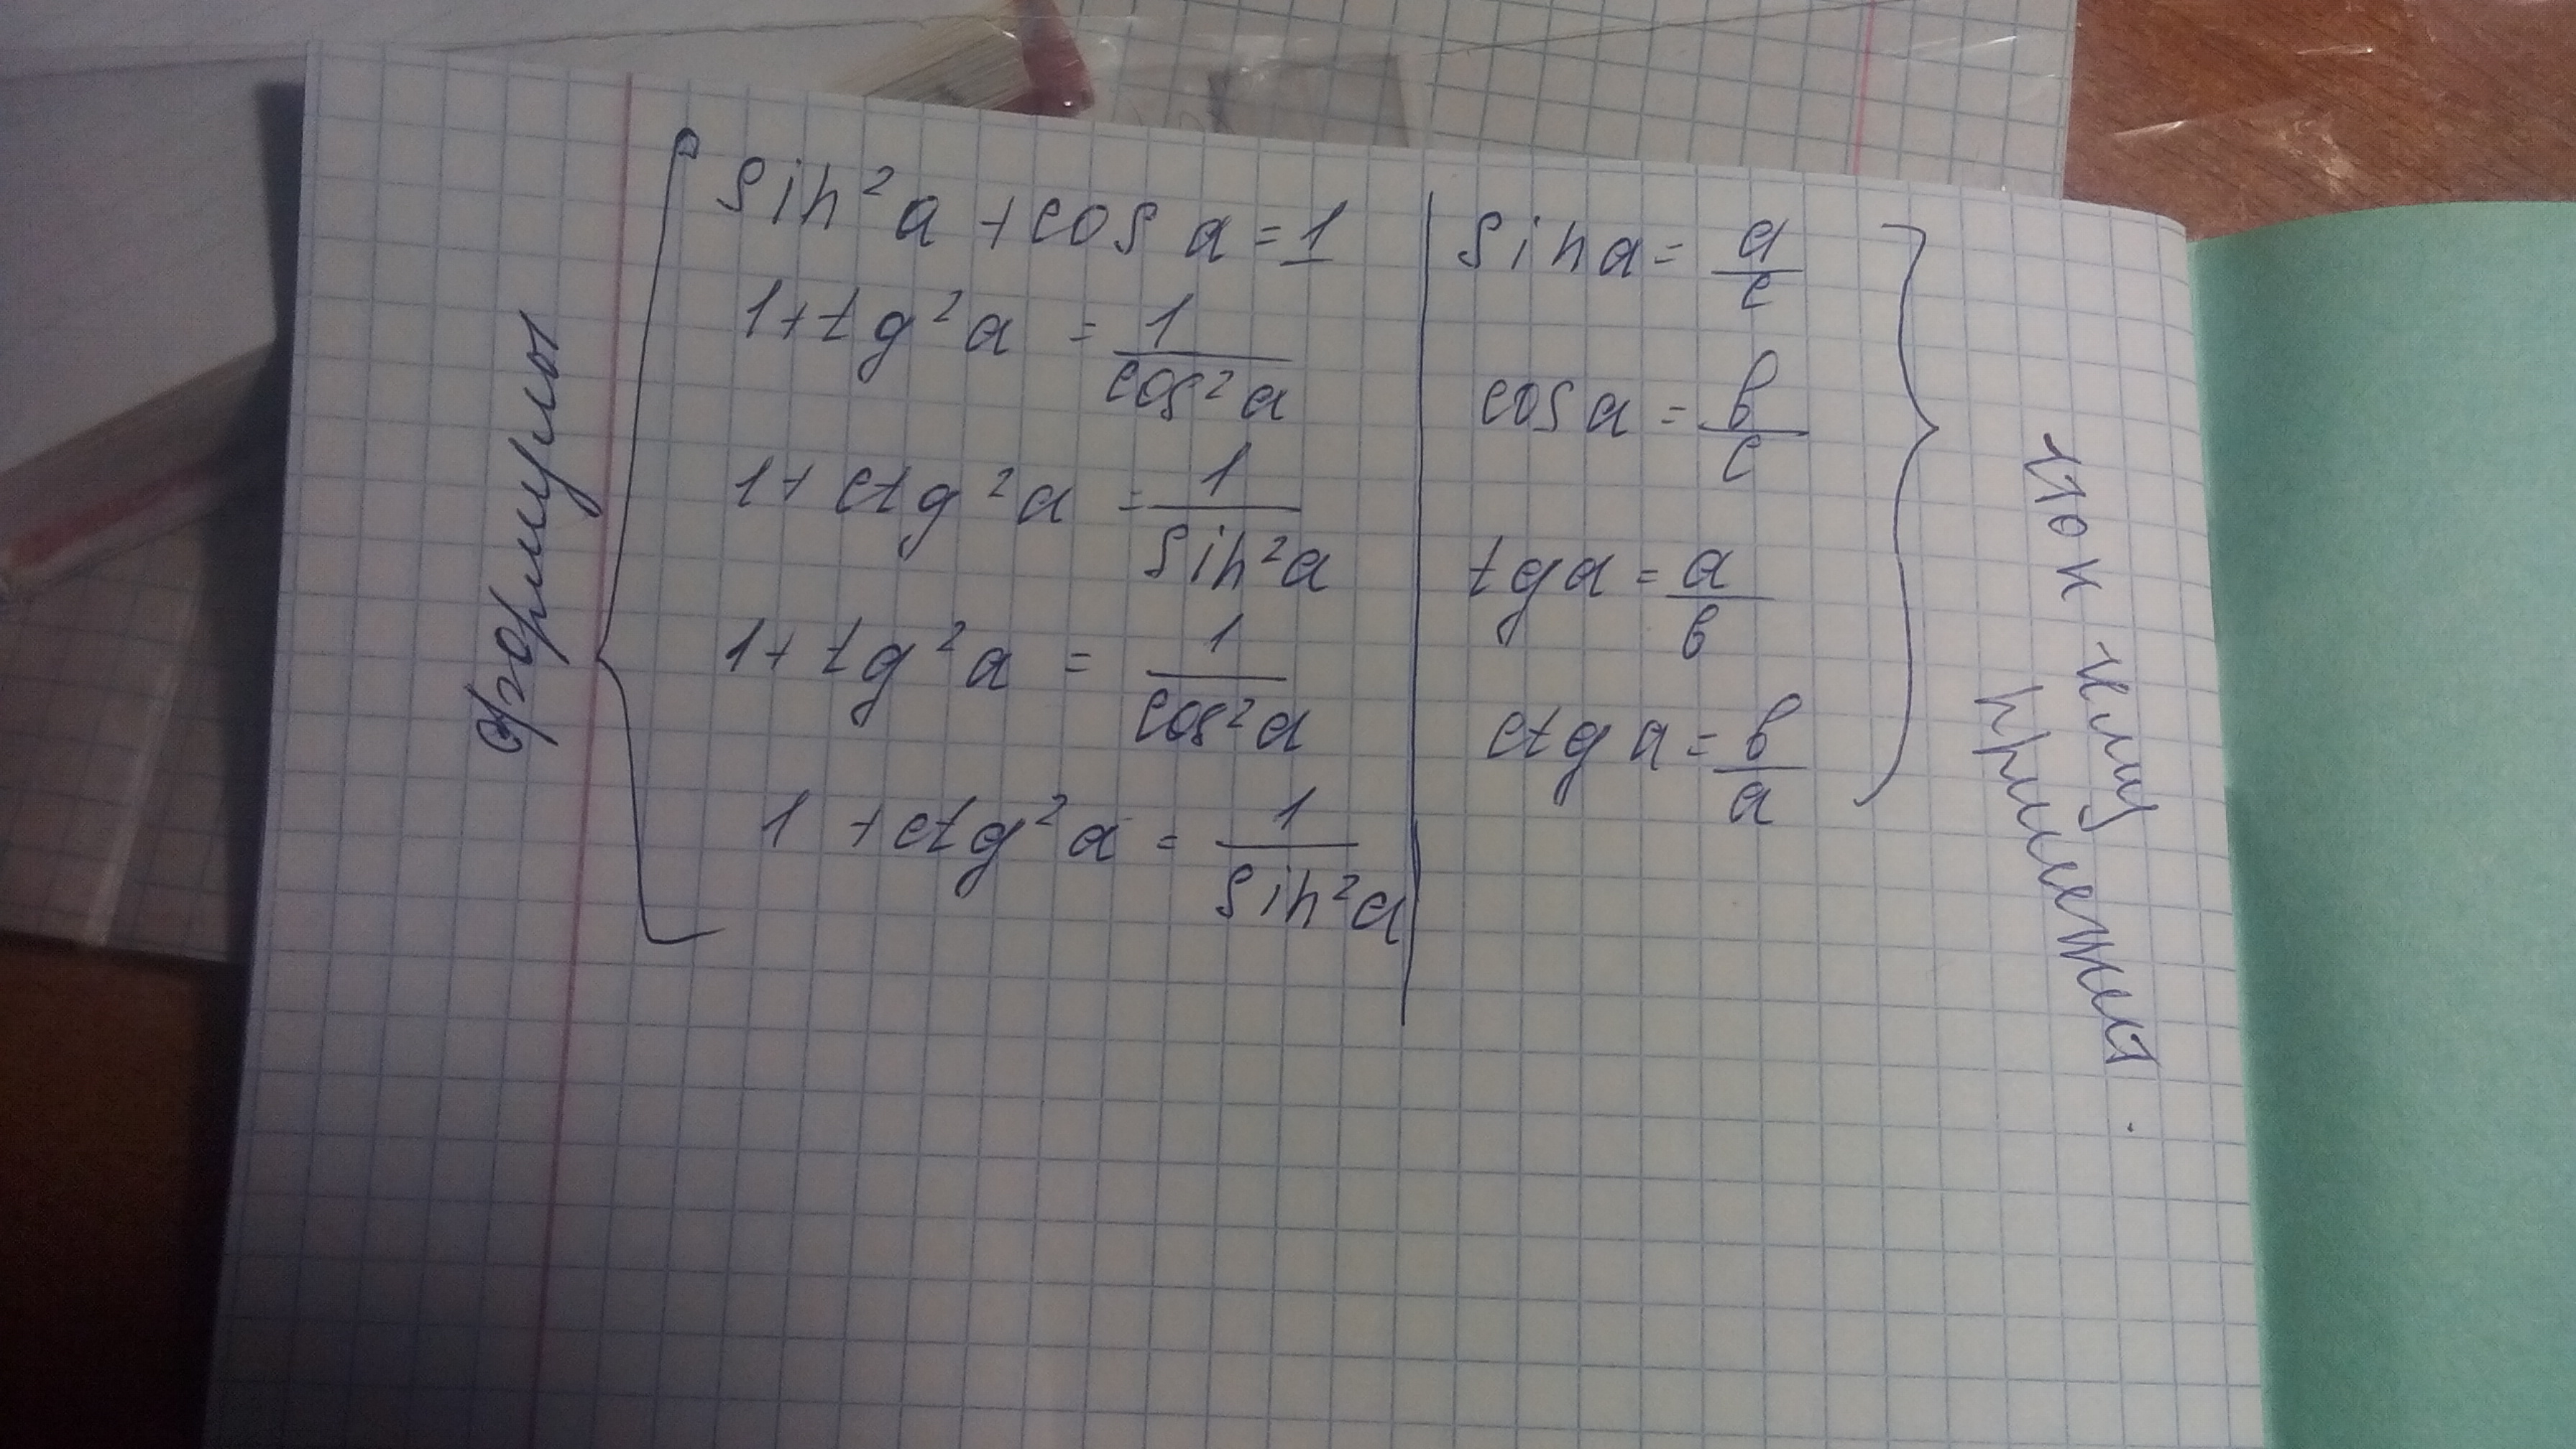 формулы
sin²a + cos a = 1
1 + tg²a = 1/cos²a
1 + ctg²a = 1/sin²a
1 + tg²a = 1/cos²a
1 + ctg²a = 1/sin²a
sin a = a/c
cos a = b/c
tg a = a/b
ctg a = b/a